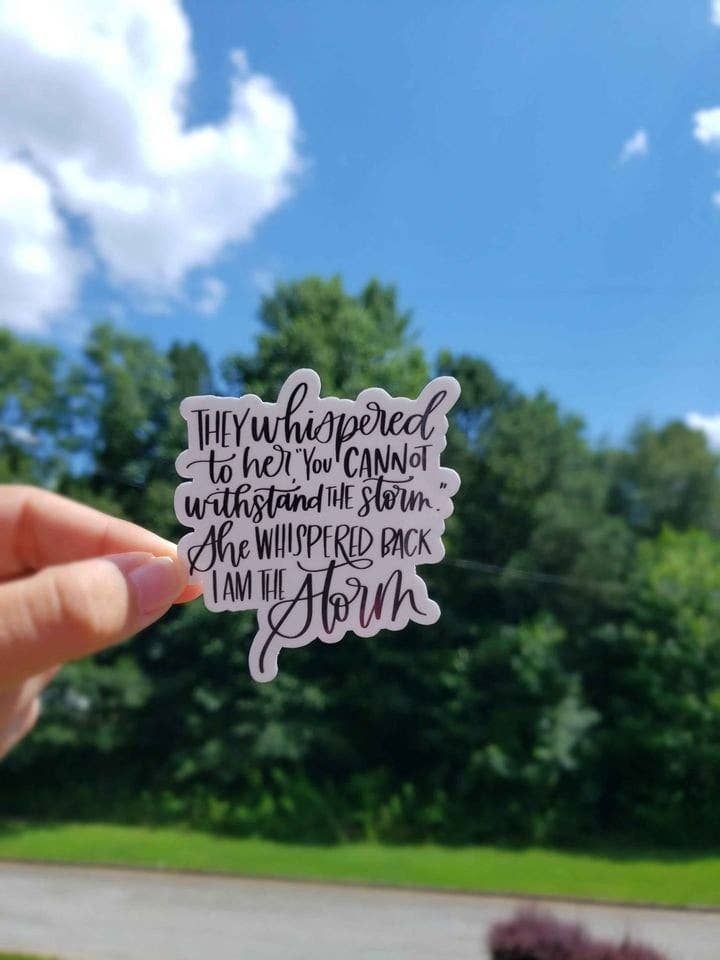 THEY whispered
to her "YOU CANNOT
withstand THE storm."
She WHISPERED BACK
I AM THE
Storm